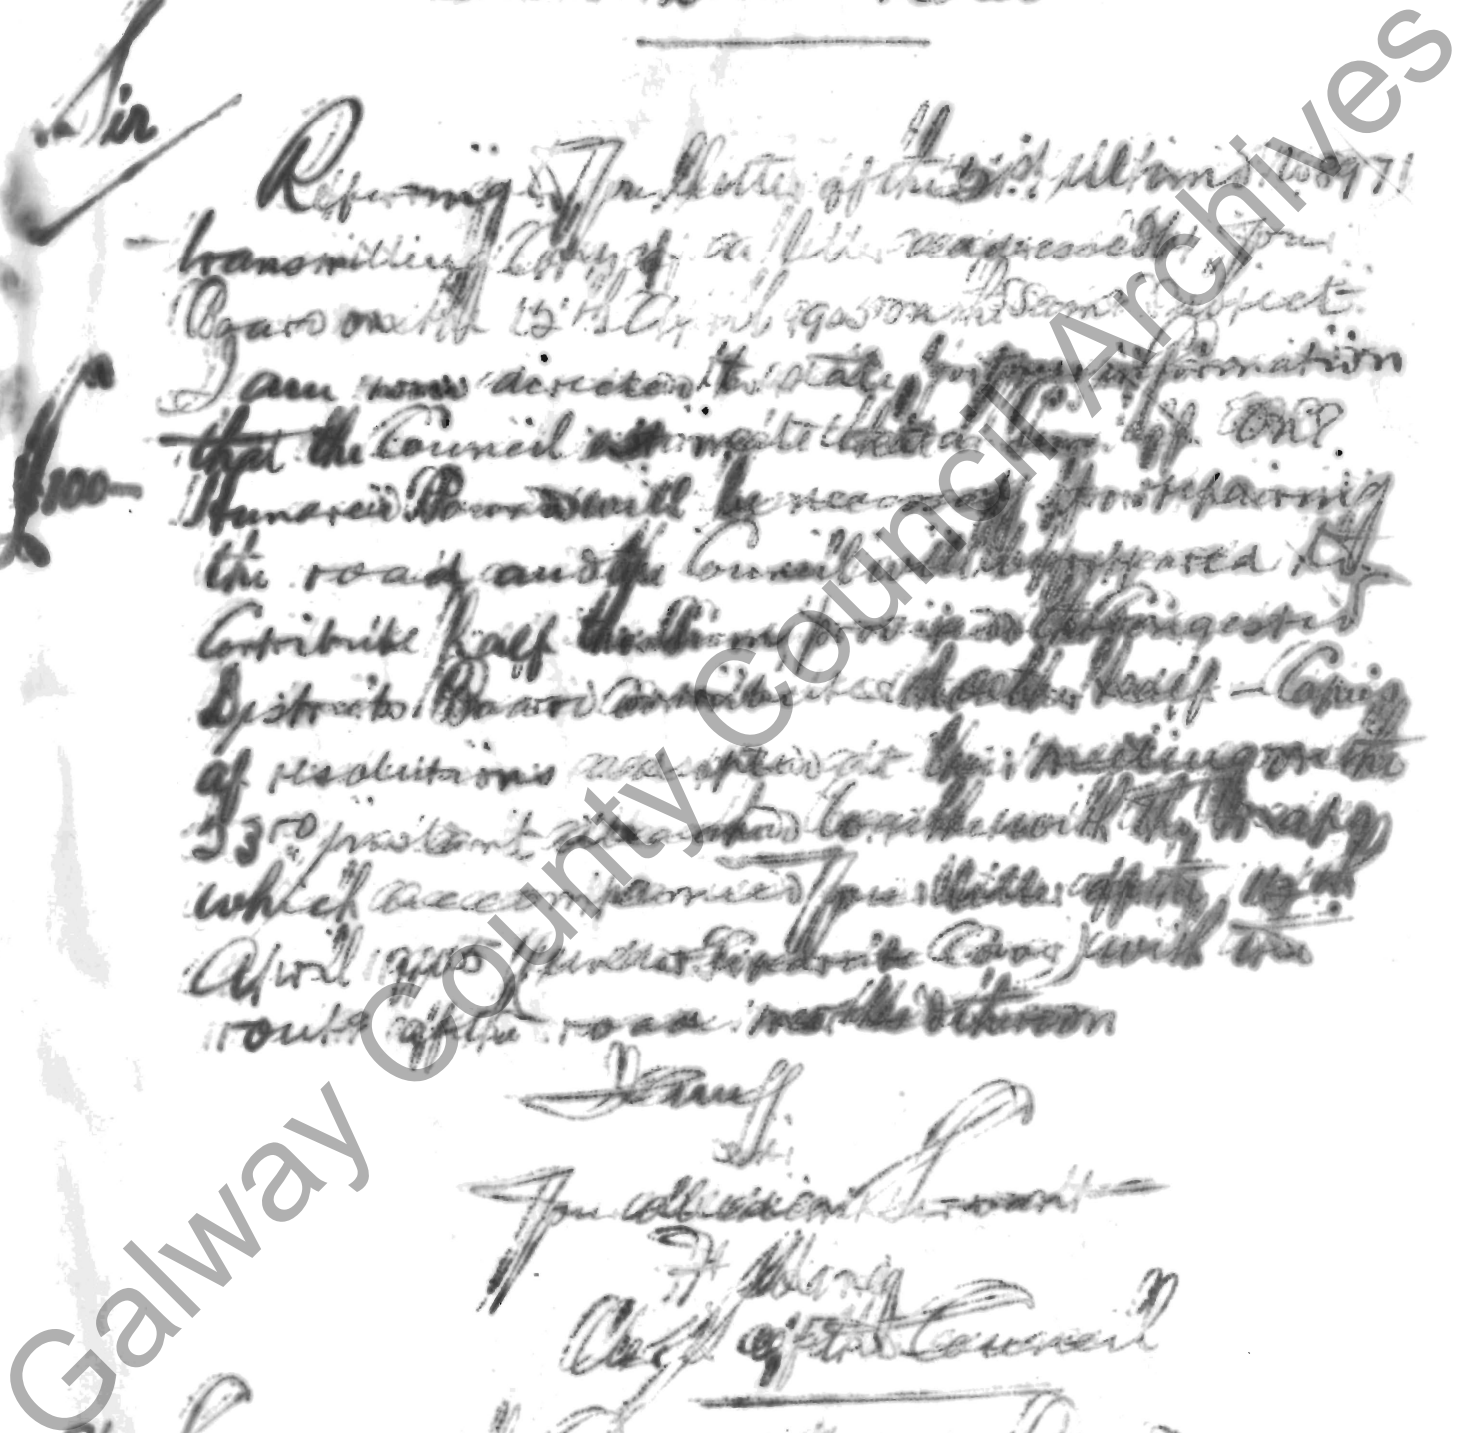 Sir
Referring to Your letter of the 31st Ultimo No 8971
transmitting Copy of a letter addressed to Your
Board on the 12th April 1900 on the same subject
I am now directed to state for your information
that the Council estimate that a Sum of One
£100—
Hundred Pounds will be necessary for repairing
the road and the Council will be prepared to
Contribute half the Sum provided the Congested
Districts Board Contribute the other half – Copies
of resolutions adopted at their meeting on the
23rd instant attached together with the
which accompanied Your letter of the 12th
April 1900 (under Separate Cover) with the
route of the road marked thereon
I am
Sir
Your obedient Servant
Clerk of the Council
Galway County Council Archives